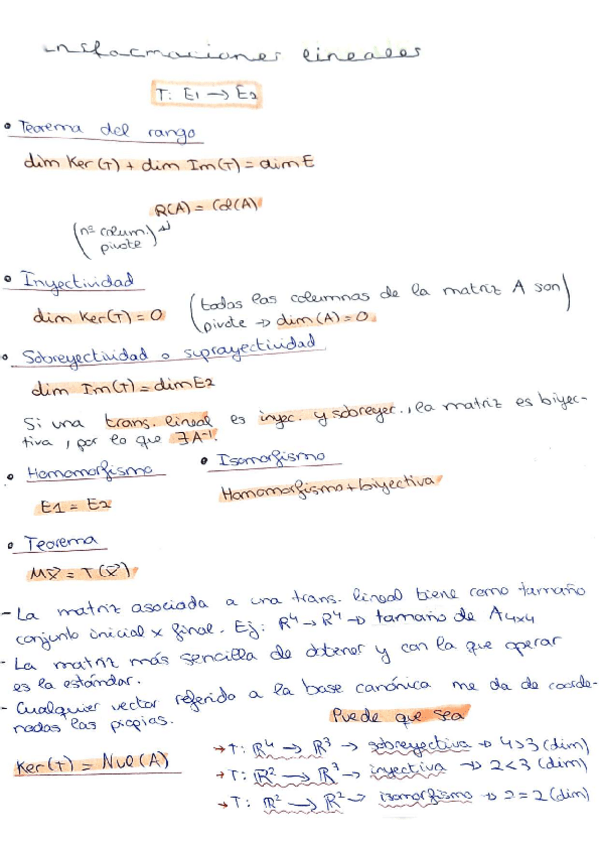 ansformaciones lineales
T: E1 → E2
• Teorema del rango
dim Ker(T) + dim Im(T) = dim E
R(A) = Col(A)
(nº colum. pivote)
• Inyectividad
dim Ker(T) = 0 (todas las columnas de la matriz A son
pivote → dim(A) = 0)
• Sobreyectividad o suprayectividad
dim Im(T) = dim E2
Si una trans. lineal es inyec. y sobreyec., la matriz es biyec-
tiva, por lo que ∃A⁻¹.
• Homomorfismo • Isomorfismo
E1 = E2 Homomorfismo + biyectiva
• Teorema
Mx⃗ = T(x⃗)
- La matriz asociada a una trans. lineal tiene como tamaño
conjunto inicial x final. Ej: ℝ⁴ → ℝ⁴ → tamaño de A4x4
- La matriz más sencilla de obtener y con la que operar
es la estándar.
- Cualquier vector referido a la base canónica me da de coorde-
nadas las propias.
Puede que sea
Ker(T) = Nul(A)
→ T: ℝ⁴ → ℝ³ → sobreyectiva → 4>3 (dim)
→ T: ℝ² → ℝ³ → inyectiva → 2<3 (dim)
→ T: ℝ² → ℝ² → isomorfismo → 2=2 (dim)